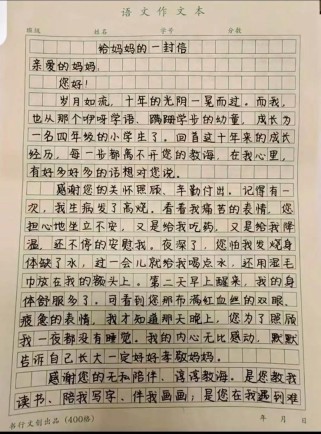 语文作文本
班级 姓名 学号 分数
给妈妈的一封信
亲爱的妈妈：
您好！
岁月如流，十年的光阴一晃而过。而我，
也从那个咿呀学语、蹒跚学步的幼童，成长为
一名四年级的小学生了。回首这十年来的成长
经历，每一步都离不开您的教海，在我心里，
有好多好多的话想对您说。
感谢您的关怀照顾，辛勤付出。记得有一
次，我生病发了高烧。看着我痛苦的表情，您
担心地坐立不安，又是给我吃药，又是给我降
温，还不停的安慰我。夜深了，您怕我发烧身
体缺了水，过一会儿就给我喝点水，还用湿毛
巾放在我的额头上。第二天早上醒来，我的身
体舒服多了。可看到您那布满红血丝的双眼、
疲惫的表情，我才知道那天晚上，您为了照顾
我一夜都没有睡觉。我的内心无比感动，默默
告诉自己长大一定好好孝敬妈妈。
感谢您的无私陪伴、谆谆教海。是您教我
读书、陪我写字、伴我画画；是您在我遇到难
书行文创出品（400格） 年 月 日